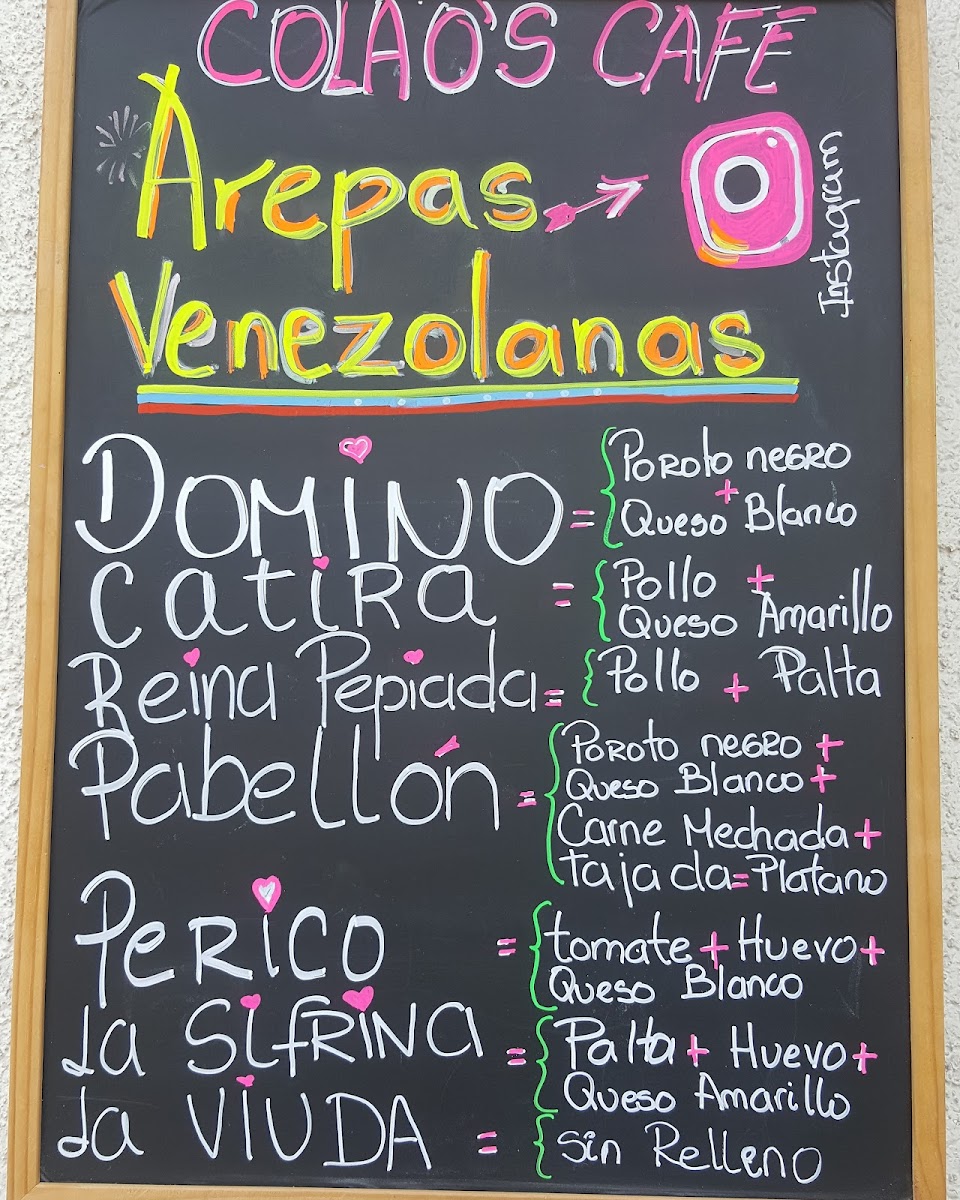 COLAO'S CAFÉ
Arepas
Instagram
Venezolanas
DOMINO = { Poroto negro
+
Queso Blanco
Catira = { Pollo +
Queso Amarillo
Reina Pepiada = { Pollo + Palta
Pabellón = { Poroto negro +
Queso Blanco +
Carne Mechada +
tajada = Platano
Perico = { tomate + Huevo +
Queso Blanco
La Sifrina = { Palta + Huevo +
Queso Amarillo
La VIUDA = { Sin Relleno